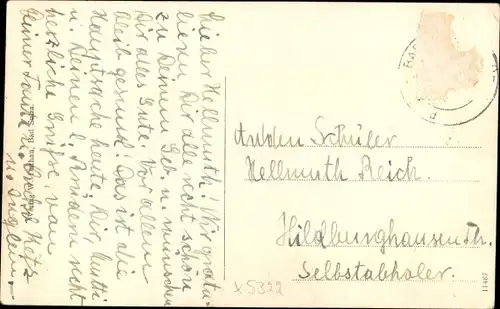 Lieber Hellmuth! Wir gratu-
lieren Dir alle recht schön
zu Deinem Geb. u. wünschen
Dir alles Gute. Vor allem
bleib gesund! Das ist die
Hauptsache heute. Dir, Mutti
u. Deinen l. Brüdern recht
herzliche Grüße, von
Deiner Tante u.
An den Schüler
Hellmuth Reich.
Hildburghausen Th.
Selbstabholer.
x5322
11487
Bad Sachsa